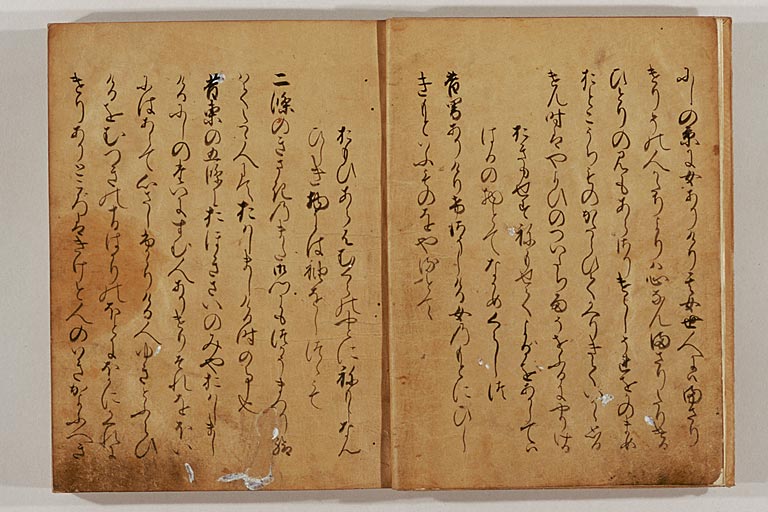 にしの京に女ありけり其女世人にはまさり
けりその人かたちよりは心なんまさりたりける
ひとりのみもあらさりけらしそれをかのまめ
おとこうちものかたらひてかへりきていかゝ思
けん時はやよひのついたち雨うちそほふるにやりける
おきもせすねもせてよるをあかしては
はるの物とてなかめくらしつ
昔男ありけりけさうしける女のもとにひし
きもといふものをやるとて
おもひあらはむくらのやとにねもしなん
ひしき物には袖をしつゝも
二條のきさきのまた御門にもつかうまつり給
はてたゝ人にておはしましける時の事也
昔東の五條におほきさいのみやおはしまし
けるにしのたいにすむ人ありけりそれをほい
にはあらて心さしふかゝりける人ゆきとふらひ
けるをむつきの十日はかりのほとにほかにかくれに
けりありところはきけと人のいきかよふへき